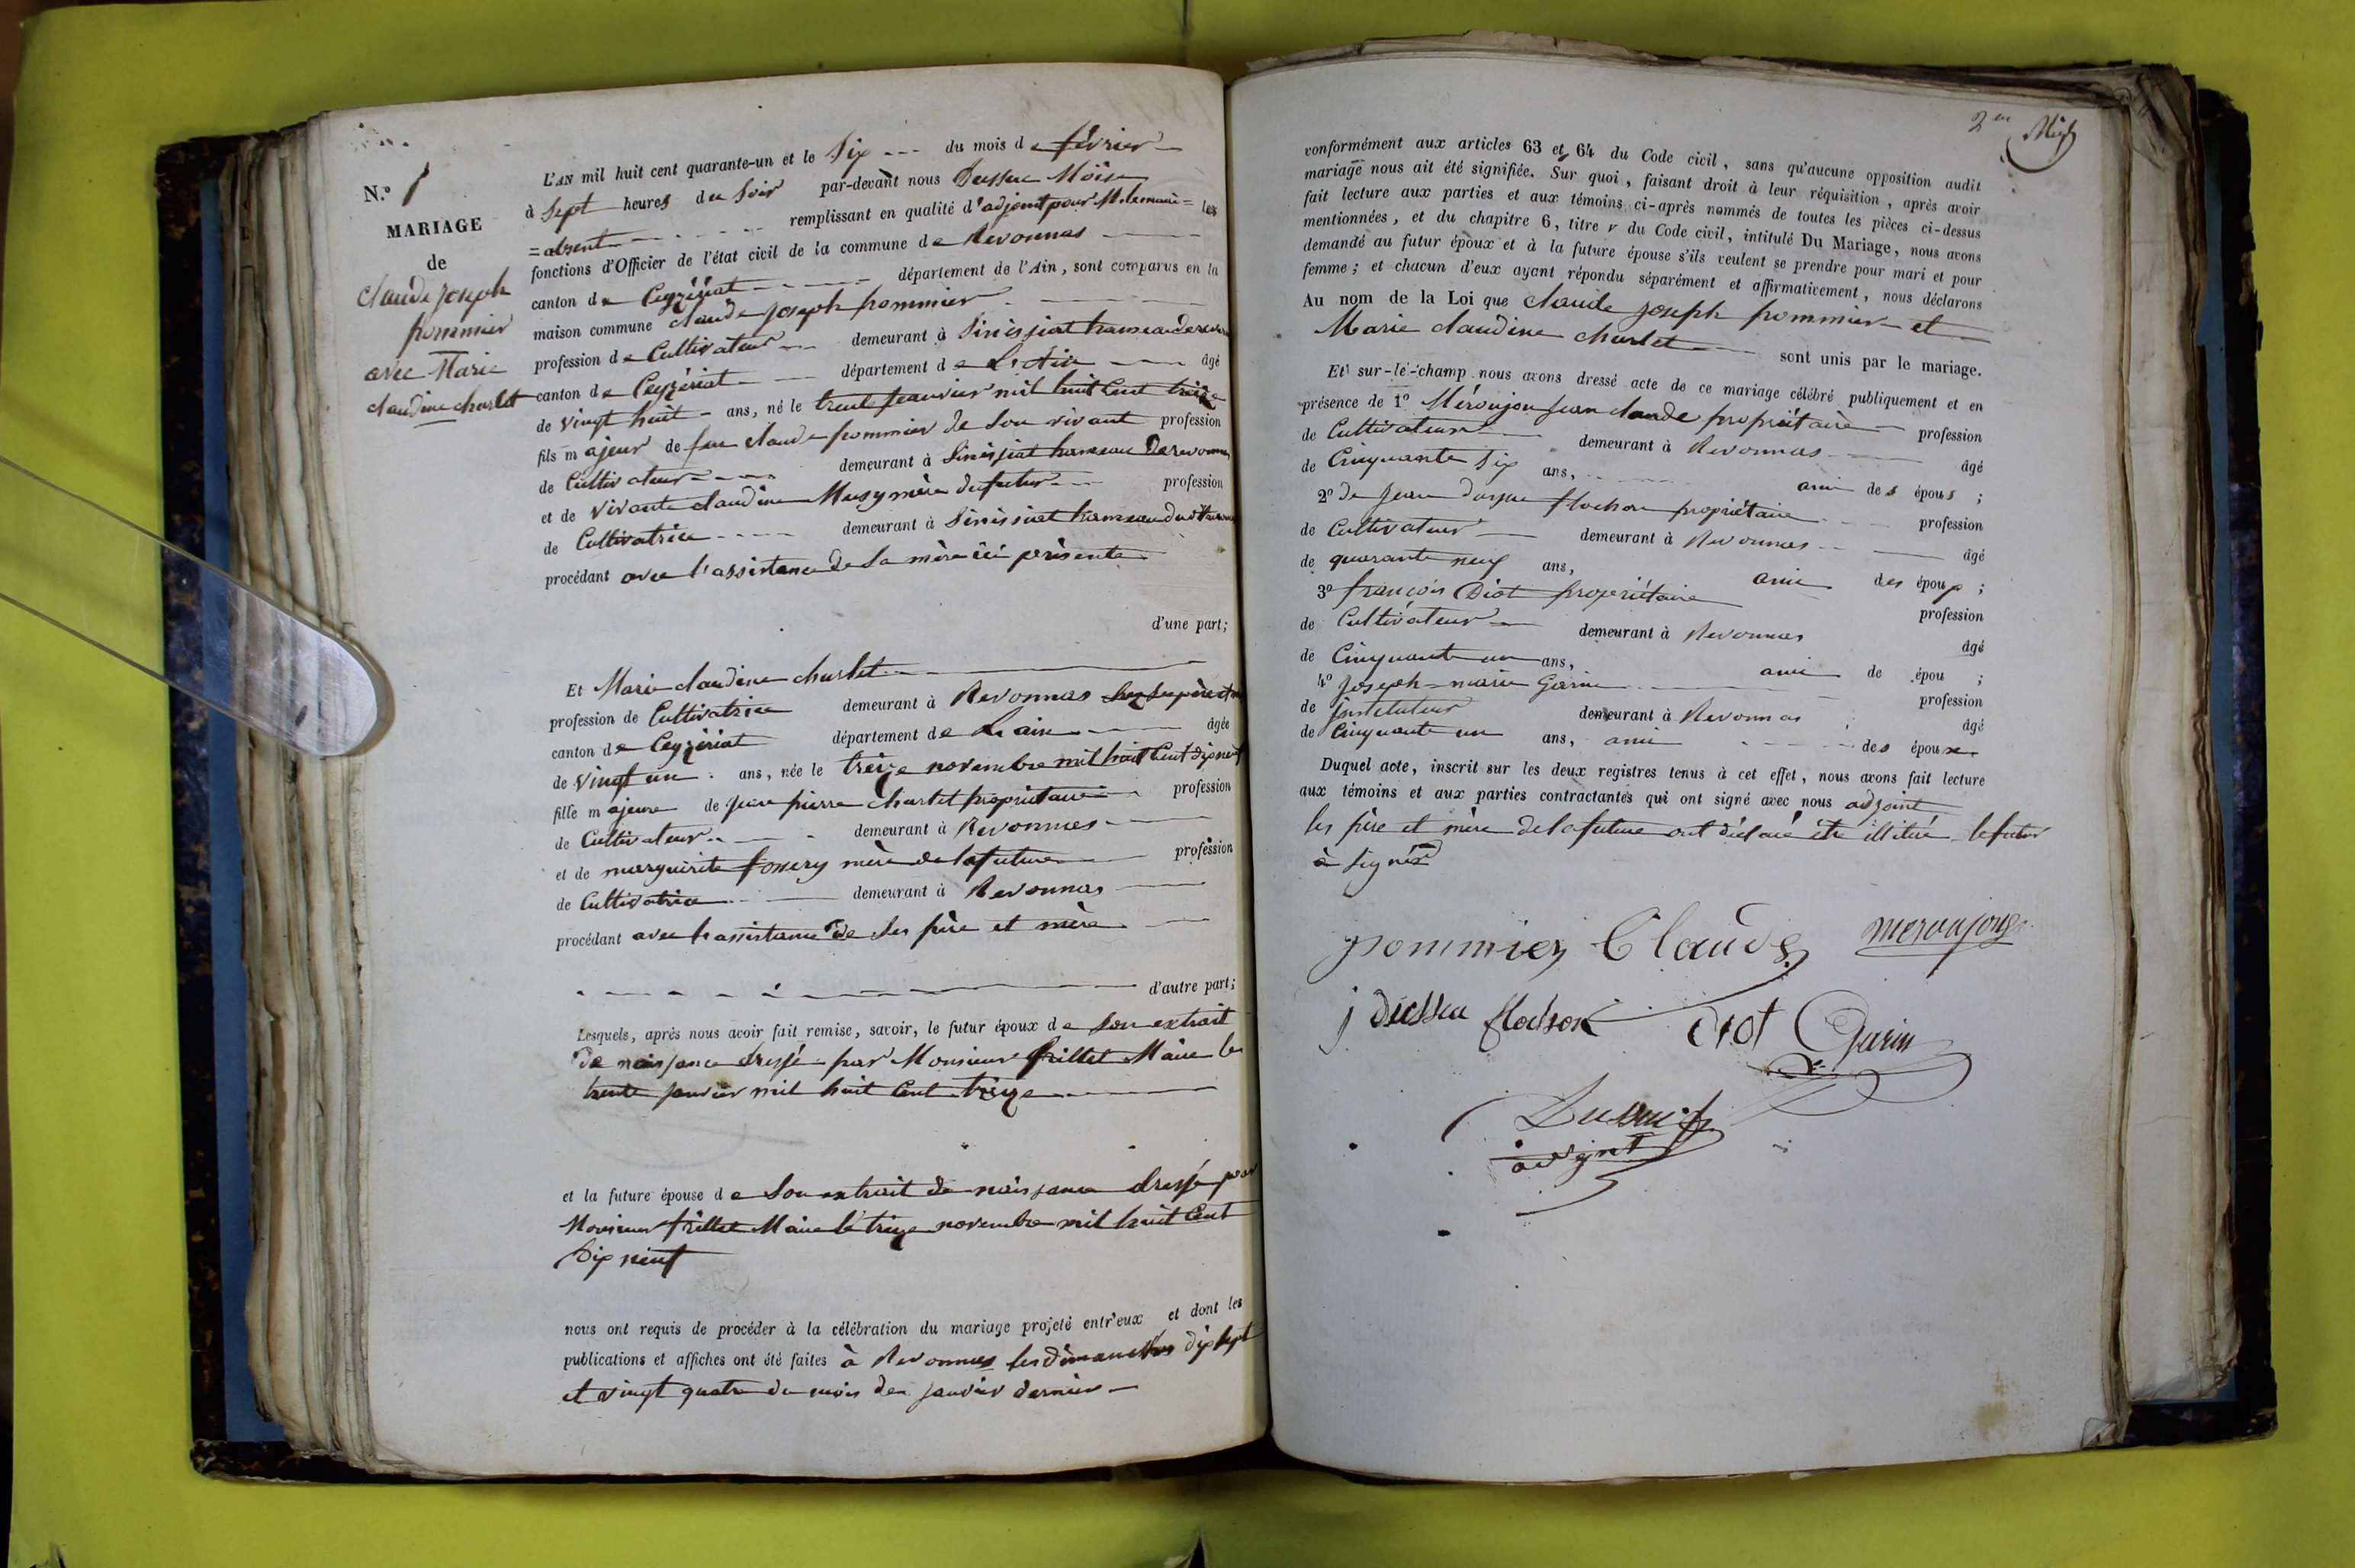 N.º 1
MARIAGE
de
claude joseph
pommier
avec Marie
claudine charlet
L'AN mil huit cent quarante-un et le Six --- du mois de février
à Sept heures du Soir par-devant nous Dussuc Moïse
= absent remplissant en qualité d'adjoint pour M. le maire = les
fonctions d'Officier de l'état civil de la commune de Revonnas
canton de Ceyzériat département de l'Ain, sont comparus en la
maison commune claude joseph pommier
profession de Cultivateur demeurant à Sinissiat hameau de
canton de Ceyzériat département de L'Ain âgé
de vingt huit ans, né le trente janvier mil huit Cent treize
fils majeur de feu claude pommier de Son vivant profession
de Cultivateur demeurant à Sinissiat hameau De revonnas
et de vivante claudine Musy mère du futur profession
de Cultivatrice demeurant à Sinissiat hameau dudit
procédant avec l'assistance de Sa mère ici présente
d'une part;
Et Marie claudine charlet
profession de Cultivatrice demeurant à Revonnas
canton de Ceyzériat département de L'ain âgée
de vingt un ans, née le treize novembre mil huit Cent dix neuf
fille majeure de jean pierre charlet propriétaire profession
de Cultivateur demeurant à Revonnas
et de marguerite mère de la future profession
de Cultivatrice demeurant à Revonnas
procédant avec l'assistance de Ses père et mère
d'autre part;
Lesquels, après nous avoir fait remise, savoir, le futur époux de Son extrait
de naissance dressé par Monsieur frillet Maire le
trente janvier mil huit Cent treize
et la future épouse de Son extrait de naissance dressé par
Monsieur frillet Maire le treize novembre mil huit Cent
Dix neuf
nous ont requis de procéder à la célébration du mariage projeté entr'eux et dont les
publications et affiches ont été faites à Revonnas les dimanches dix Sept
et vingt quatre du mois de janvier dernier
2en
conformément aux articles 63 et 64 du Code civil, sans qu'aucune opposition audit
mariage nous ait été signifiée. Sur quoi, faisant droit à leur réquisition, après avoir
fait lecture aux parties et aux témoins ci-après nommés de toutes les pièces ci-dessus
mentionnées, et du chapitre 6, titre v du Code civil, intitulé Du Mariage, nous avons
demandé au futur époux et à la future épouse s'ils veulent se prendre pour mari et pour
femme; et chacun d'eux ayant répondu séparément et affirmativement, nous déclarons
Au nom de la Loi que claude joseph pommier et
Marie claudine charlet sont unis par le mariage.
Et sur-le-champ nous avons dressé acte de ce mariage célébré publiquement et en
présence de 1º Méroujon jean claude propriétaire profession
de Cultivateur demeurant à Revonnas âgé
de Cinquante Six ans, ami des épous ;
2º De jean flochon propriétaire profession
de Cultivateur demeurant à Revonnas âgé
de quarante neuf ans, ami des époux ;
3º françois Diot propriétaire profession
de Cultivateur demeurant à Revonnas âgé
de Cinquante un ans, ami de épou ;
4º joseph marie Garin profession
de instituteur demeurant à Revonnas âgé
de Cinquante un ans, ami des époux
Duquel acte, inscrit sur les deux registres tenus à cet effet, nous avons fait lecture
aux témoins et aux parties contractantes qui ont signé avec nous adjoint
les père et mère de la future ont déclaré être illitéré le futur
à Signé
pommier Claude
flochon diot Garin
adjoint